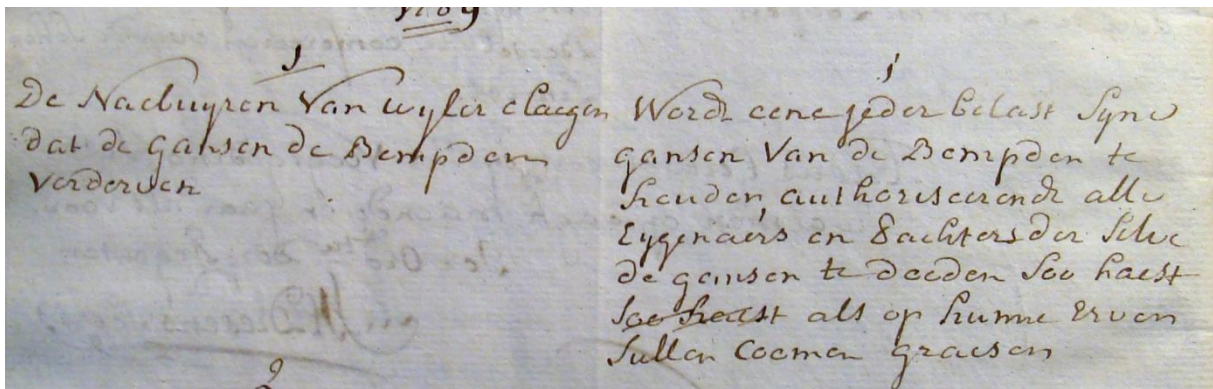 1709
1
De Naebuyren Van wyler claegen
dat de gansen de Bempden
Verderven
2
1
Wordt eene jeder belast Syne
gansen Van de Bempden te
houden, authoriseerende alle
Eygenaers en Pachters der selve
de gansen te dooden soo haest
soo haest als op hunne Erven
sullen Coemen graesen